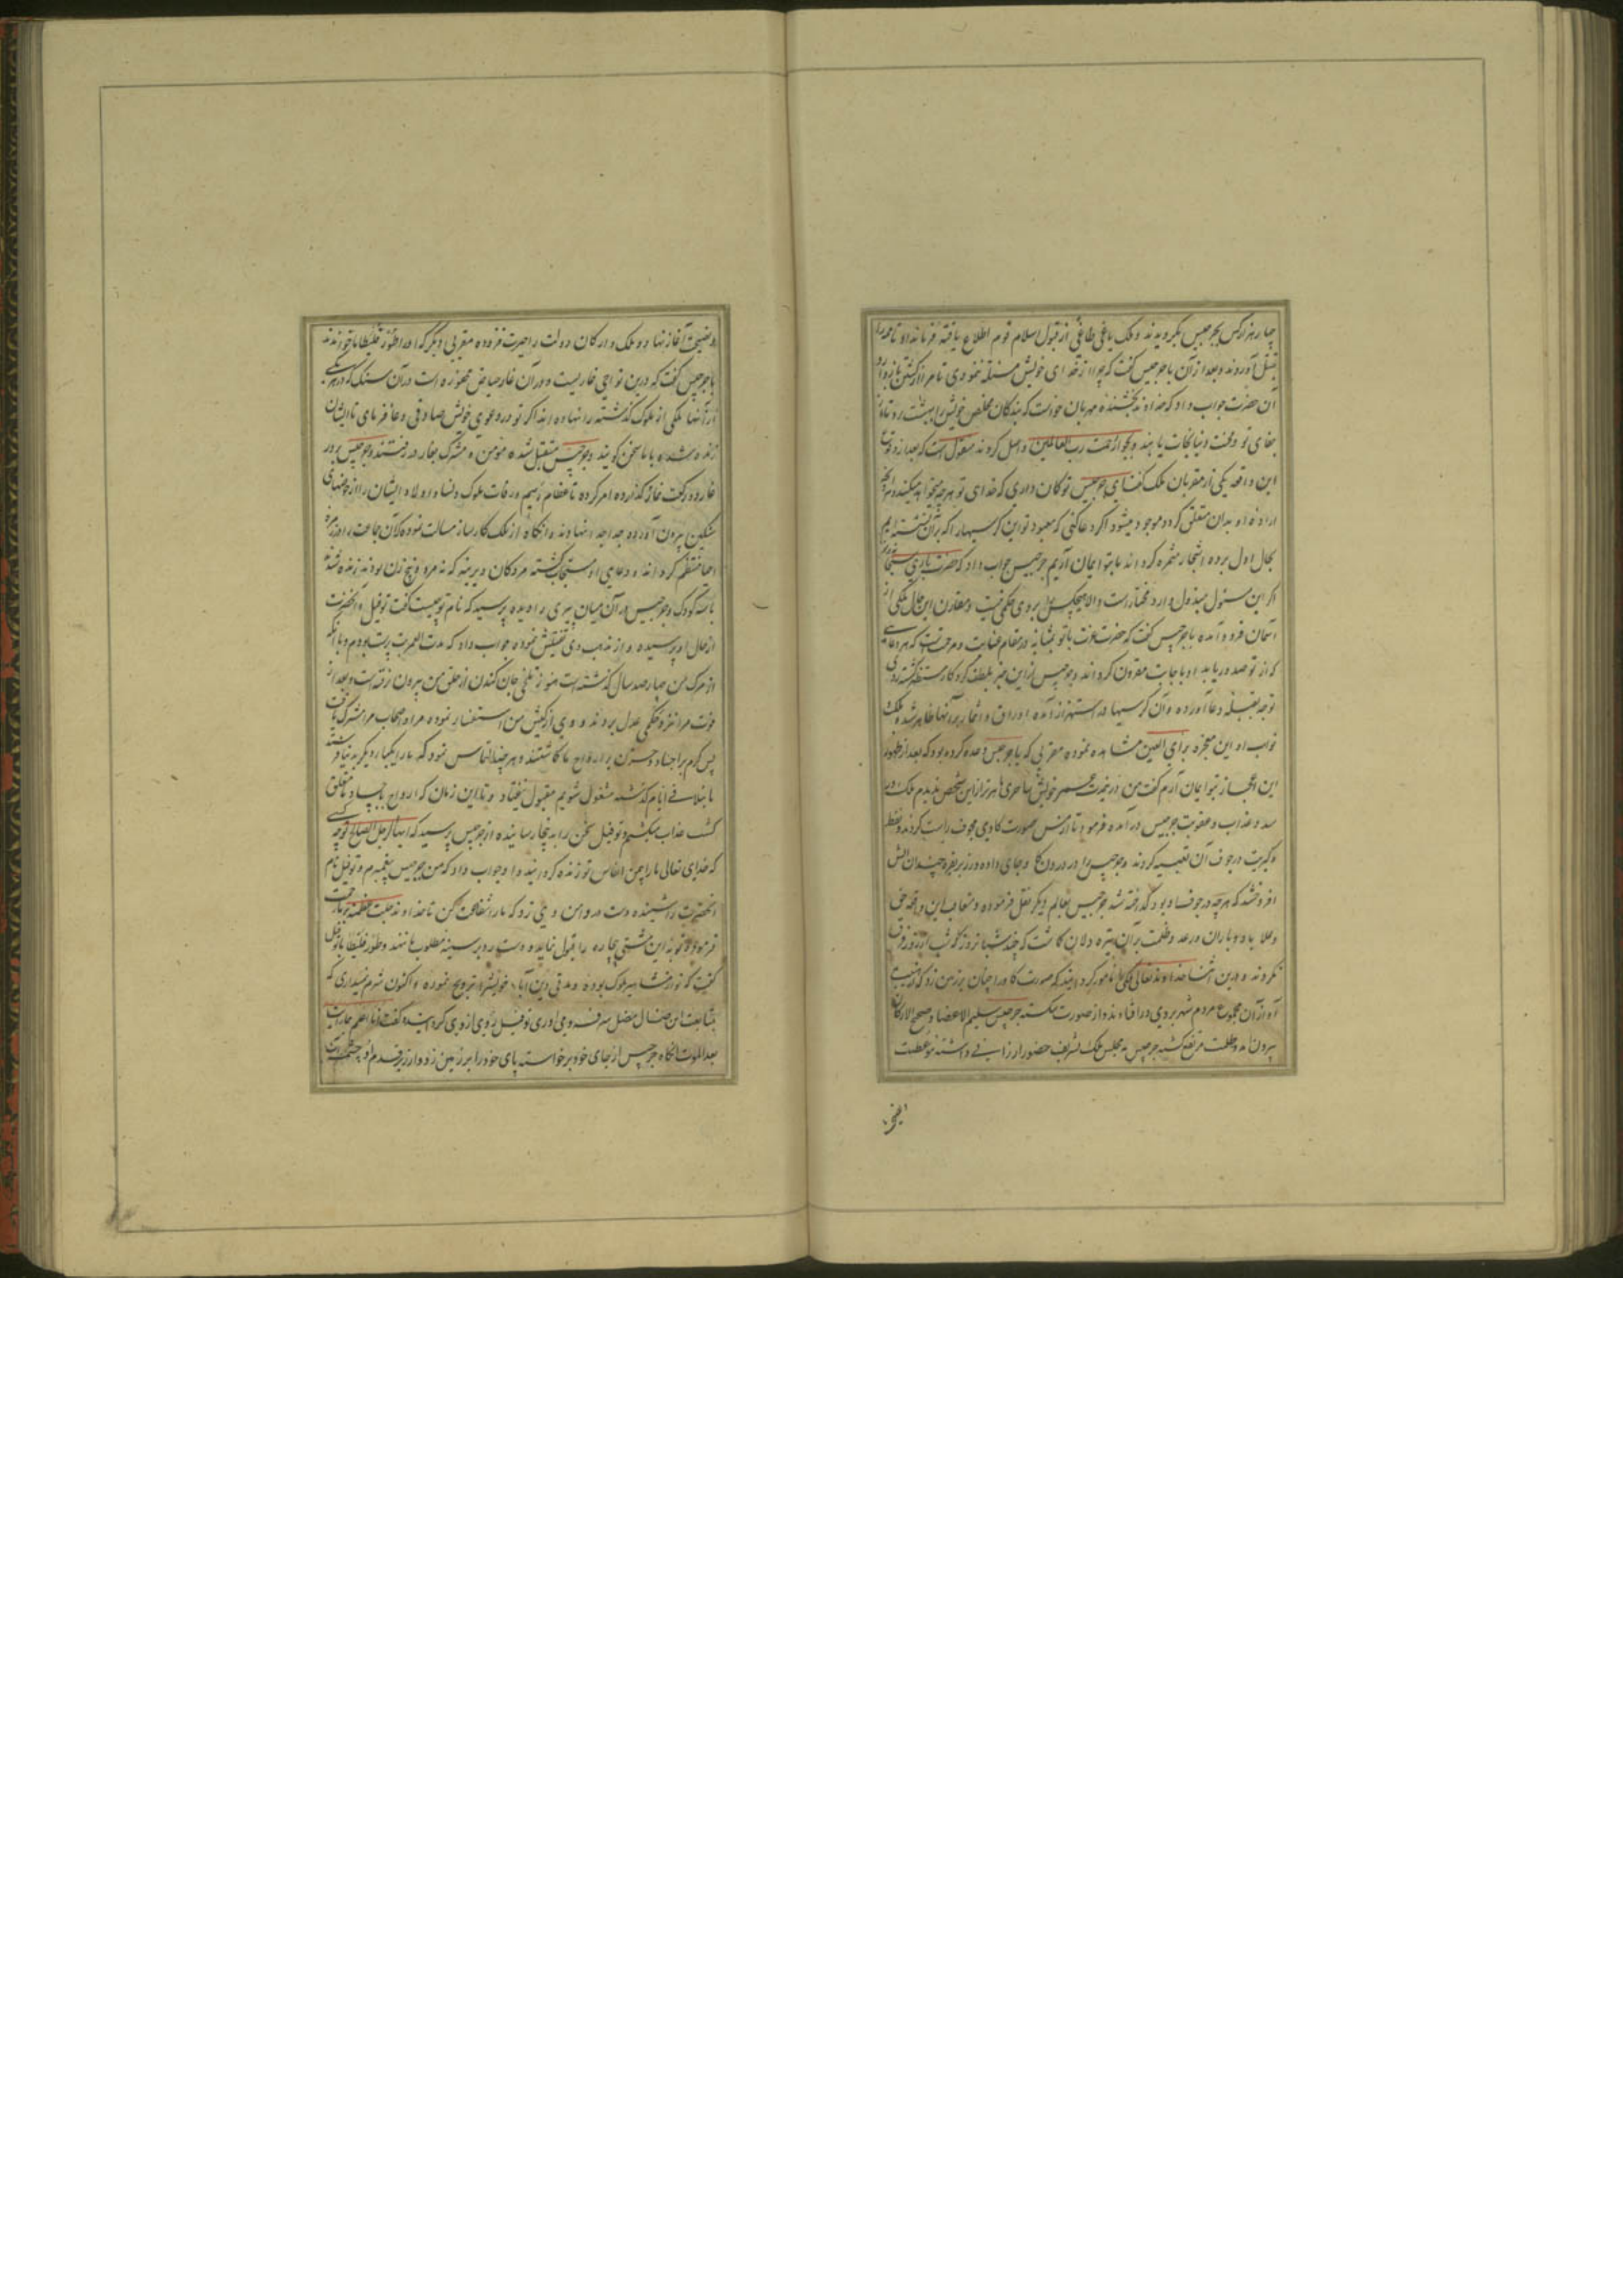 چهار هزار کس بجرجیس بگرویدند و ملک یاغی طاغی از قبول اسلام قوم اطلاع یافته فرمانداد تا همه را
بقتل آوردند و بعد از آن با جرجیس گفت که چرا از خدای خویش مسئلت ننمودی تا مر از کشتن باز دارد
آن حضرت جواب داد که خداوند بخشنده مهربان خواست که بندگان مخلص خویش را ببهشت رساند تا از
جفای تو و محنت دنیا نجات یابند و بجوار رحمت رب العالمین واصل کردند منقول است که بعد از وقوع
این واقعه یکی از مقربان ملک گفت ای جرجیس تو کمان داری که خدای تو هر چه میخواهد میکند و هر چه
اراده او بدان متعلق کردد موجود میشود اکر دعا کنی که معبود تو این کرسیها را که بر آن نشسته ایم
بحال اول برده اشجار مثمره کرداند ما بتو ایمان آریم جرجیس جواب داد که حضرت باری سبحانه
اکر این مسئول مبذول دارد مختار است و الا هیچکس را بر وی حکمی نیست و مقارن این حال ملکی از
آسمان فرود آمده با جرجیس گفت که حضرت عزت با تو بمثابه در مقام عنایت و مرحمت است که هر دعایی
که از تو صدور یابد او باجابت مقرون کرداند و جرجیس از این خبر بلطف کردکار مستظهر کشته روی
توجه بقبله دعا آورده و آن کرسیها در اهتزاز آمده اوراق و اثمار بر آنها ظاهر شده ملک
نواب او این معجزه برای العین مشاهده نموده مقربی که با جرجیس وعده کرده بود که بعد از ظهور
این اعجاز بتو ایمان آرم گفت من در مدت عمر خویش ساحری ماهرتر از این شخص ندیدم ملک در
صدد عذاب و عقوبت جرجیس در آمده فرمود تا از مس صورت کاوی مجوف راست کردند و نفط
و کبریت در جوف آن تعبیه کردند و جرجیس را در درون کاو جای داده و در زیر بقره چندان آتش
افروختند که هر چه در جوف او بود کداخته شد جرجیس بعالم دیگر نقل فرموده و متعاقب این واقعه حق
و علا باد و باران و رعد و ظلمت بر آن تیره دلان کماشت که چند شبانروز که شب از روز فرق
نکردند و درین اثنا خداوند تعالی ملکی را مامور کردانید که صورت کاو را چنان بر زمین زد که از هیبت
آواز آن مجموع مردم شهر بروی در افتادند و از صورت شکسته جرجیس سلیم الاعضا و صحیح الارکان
بیرون آمد و ظلمت مرتفع کشته جرجیس به مجلس ملک تشریف حضور ارزانی داشته موعظت
و نصیحت آغاز نهاد و ملک و ارکان دولت را حیرت فزوده مقربی دیگر که او را طور فلیطا میخواندند
با جرجیس گفت که درین نواحی غاریست و در آن غار حیاض محفوره است در آن سنگ که در هر یکی
از آنها ملکی از ملوک گذشته را نهاده اند اکر تو در دعوی خویش صادقی دعا فرمای تا ایشان
زنده شده با ما سخن گویند و جرجیس متقبل شده مومن و مشرک بغار در رفتند و جرجیس بر در
غار دو رکعت نماز گذارده امر کرده تا عظام رمیم و رفات ملوک و نساء و اولاد ایشان را از حوضهای
سنگین بیرون آورده جدا جدا نهادند و انکاه از ملک کارساز مسالت نمود که آن جماعت را در زمره
احیا منتظم کرداند و دعای او مستجاب کشته مردکان دیرینه که نه مرد و پنج زن بودند زنده شدند
با سه کودک و جرجیس در آن میان پیری را دیده پرسید که نام تو چیست گفت توفیل و آنحضرت
از حال او پرسیده و از مذهب وی تفتیش نموده جواب داد که مدت العمر بت پرست بودم و با آنکه
از مرک من چهار صد سال گذشته است هنوز تلخی جان کندن از حلق من بیرون نرفته است و بعد از
فوت مرا نزد حکمی عدل بردند و وی از کیش من استفسار نموده مرا و اصحاب مرا مشرک یافت
پس کرم بر اجساد و حزن بر ارواح ما کماشتند و هر چند التماس نمود که ما را یکبار دیگر به دنیا فرستند
تا بتلافی ایام گذشته مشغول شویم مقبول نیفتاد و تا این زمان که ارواح باجساد متعلق
کشت عذاب میکشیم و توفیل سخن را به اینجا رسانیده از جرجیس پرسید که ایها الرجل الصالح تو چه کسی
که خدای تعالی ما را بیمن انفاس تو زنده کردانید و او جواب داد که من جرجیس پیغمبرم و توفیل نام
آنحضرت را شنیده دست در دامن وی زد که ما را شفاعت کن تا خداوند جلت عظمته بر ما رحمت
فرموده توبه این مشتی بیچاره را قبول نماید و دست رد بر سینه مطلوب ما ننهد و طور فلیطا با توفیل
گفت که تو از مشاهیر ملوک بوده و مدتی دین آباء خویش را ترویج نموده اکنون شرم نمیداری که
متابعت این ضال مضل سر فرود می آوری توفیل روی از وی کردانیده گفت انا اعلم بما رایت
بعد الموت آنکاه جرجیس از جای خود برخواسته پای خود را بر زمین زد و از زیر قدم او چشمه آب